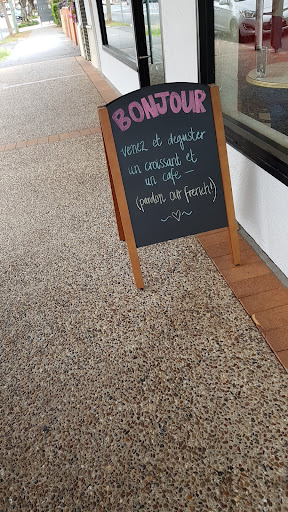 BONJOUR
venez et deguster
un croissant et
un cafe —
(pardon our French!)